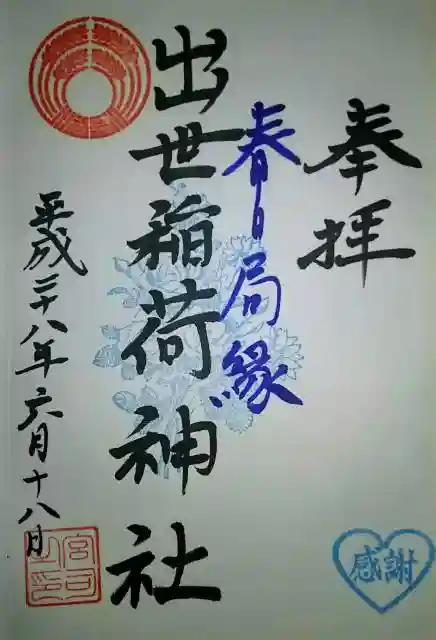 奉拝
春日局縁
出世稲荷神社
平成二十八年六月十八日
宮司之印
感謝